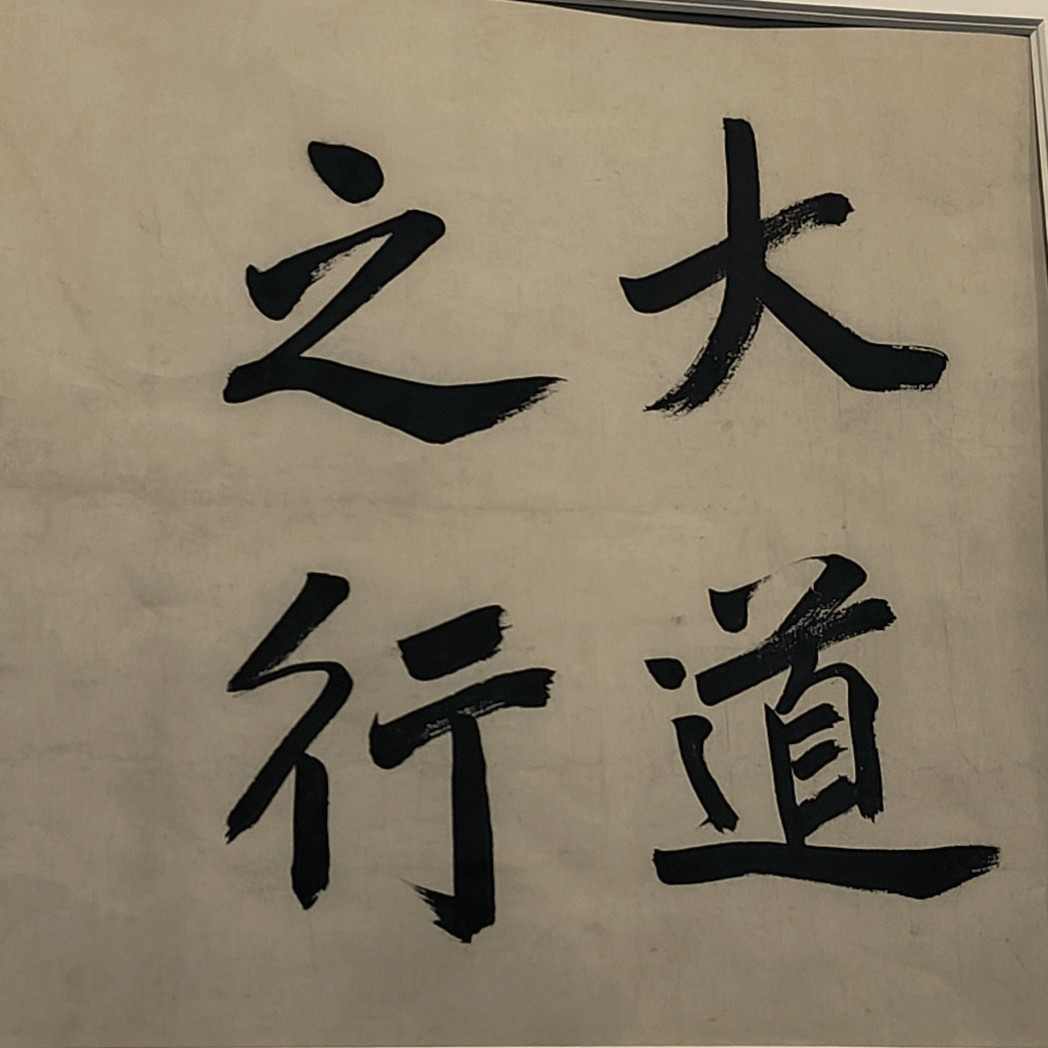 大道
之行